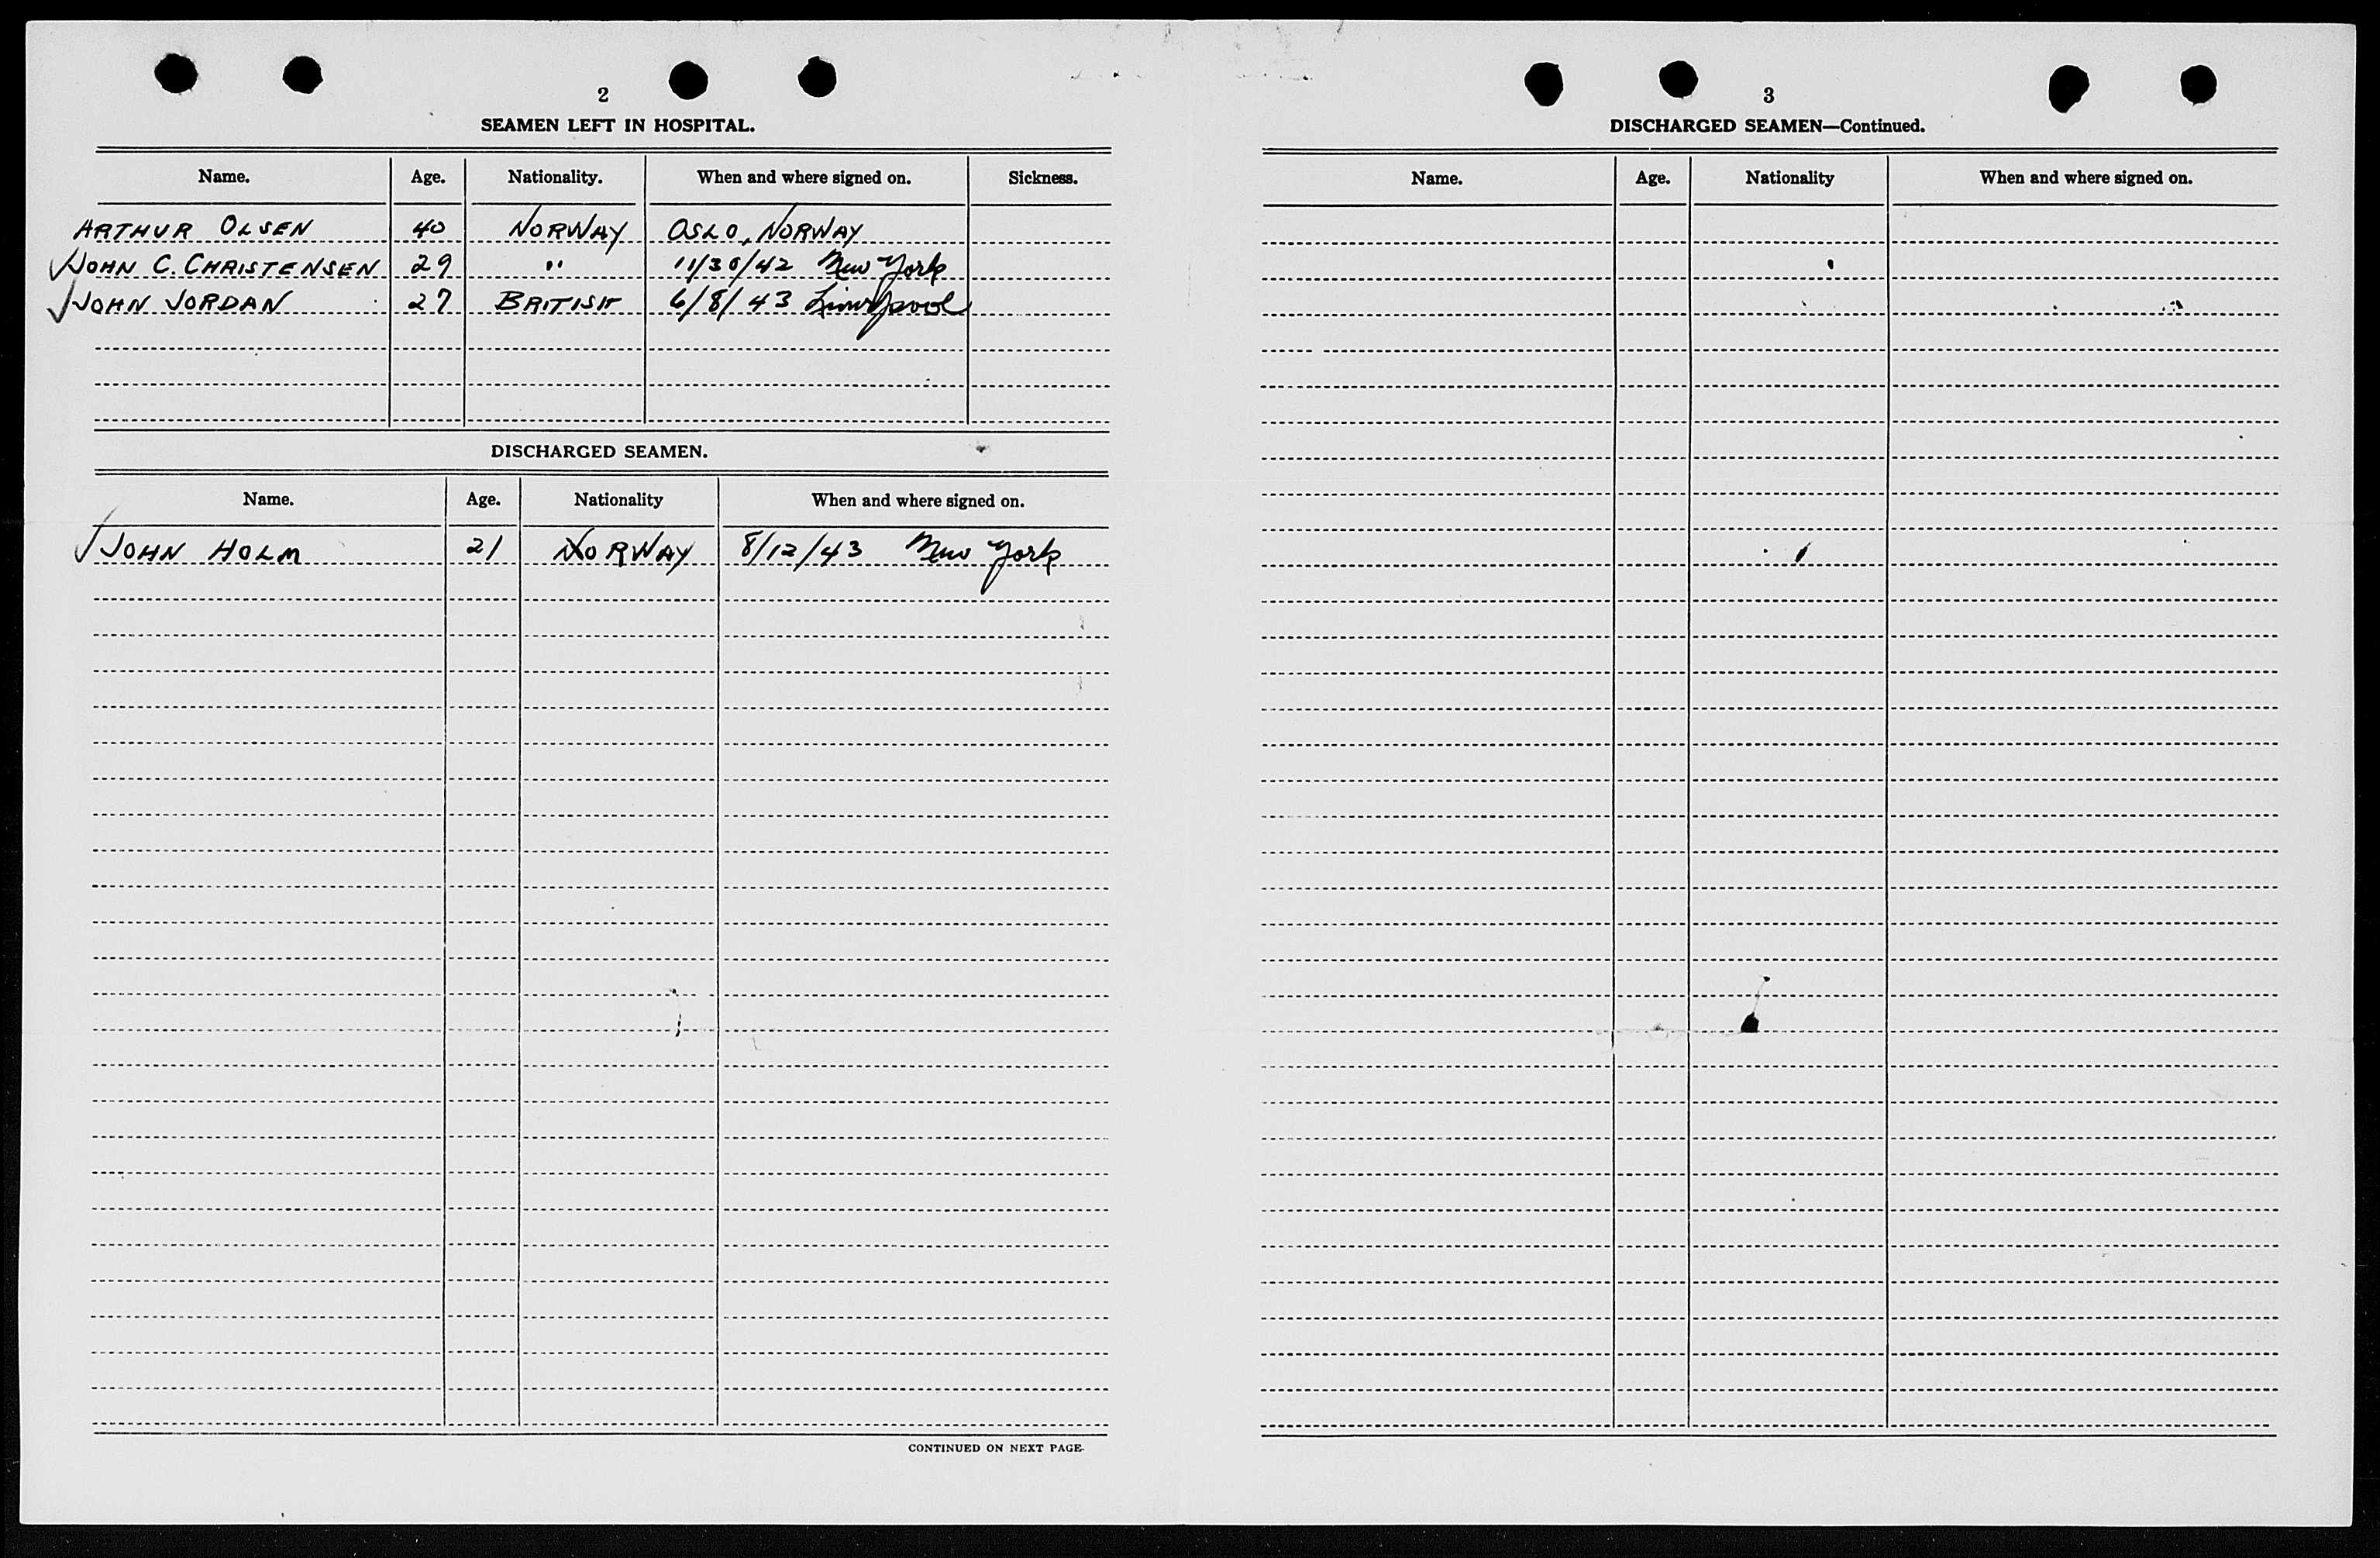 2
SEAMEN LEFT IN HOSPITAL.
Name. Age. Nationality. When and where signed on. Sickness.
ARTHUR OLSEN 40 NORWAY OSLO, NORWAY
JOHN C. CHRISTENSEN 29 " 11/30/42 New York
JOHN JORDAN 27 BRITISH 6/8/43 Liverpool
DISCHARGED SEAMEN.
Name. Age. Nationality When and where signed on.
JOHN HOLM 21 NORWAY 8/12/43 New York
CONTINUED ON NEXT PAGE-
3
DISCHARGED SEAMEN—Continued.
Name. Age. Nationality When and where signed on.